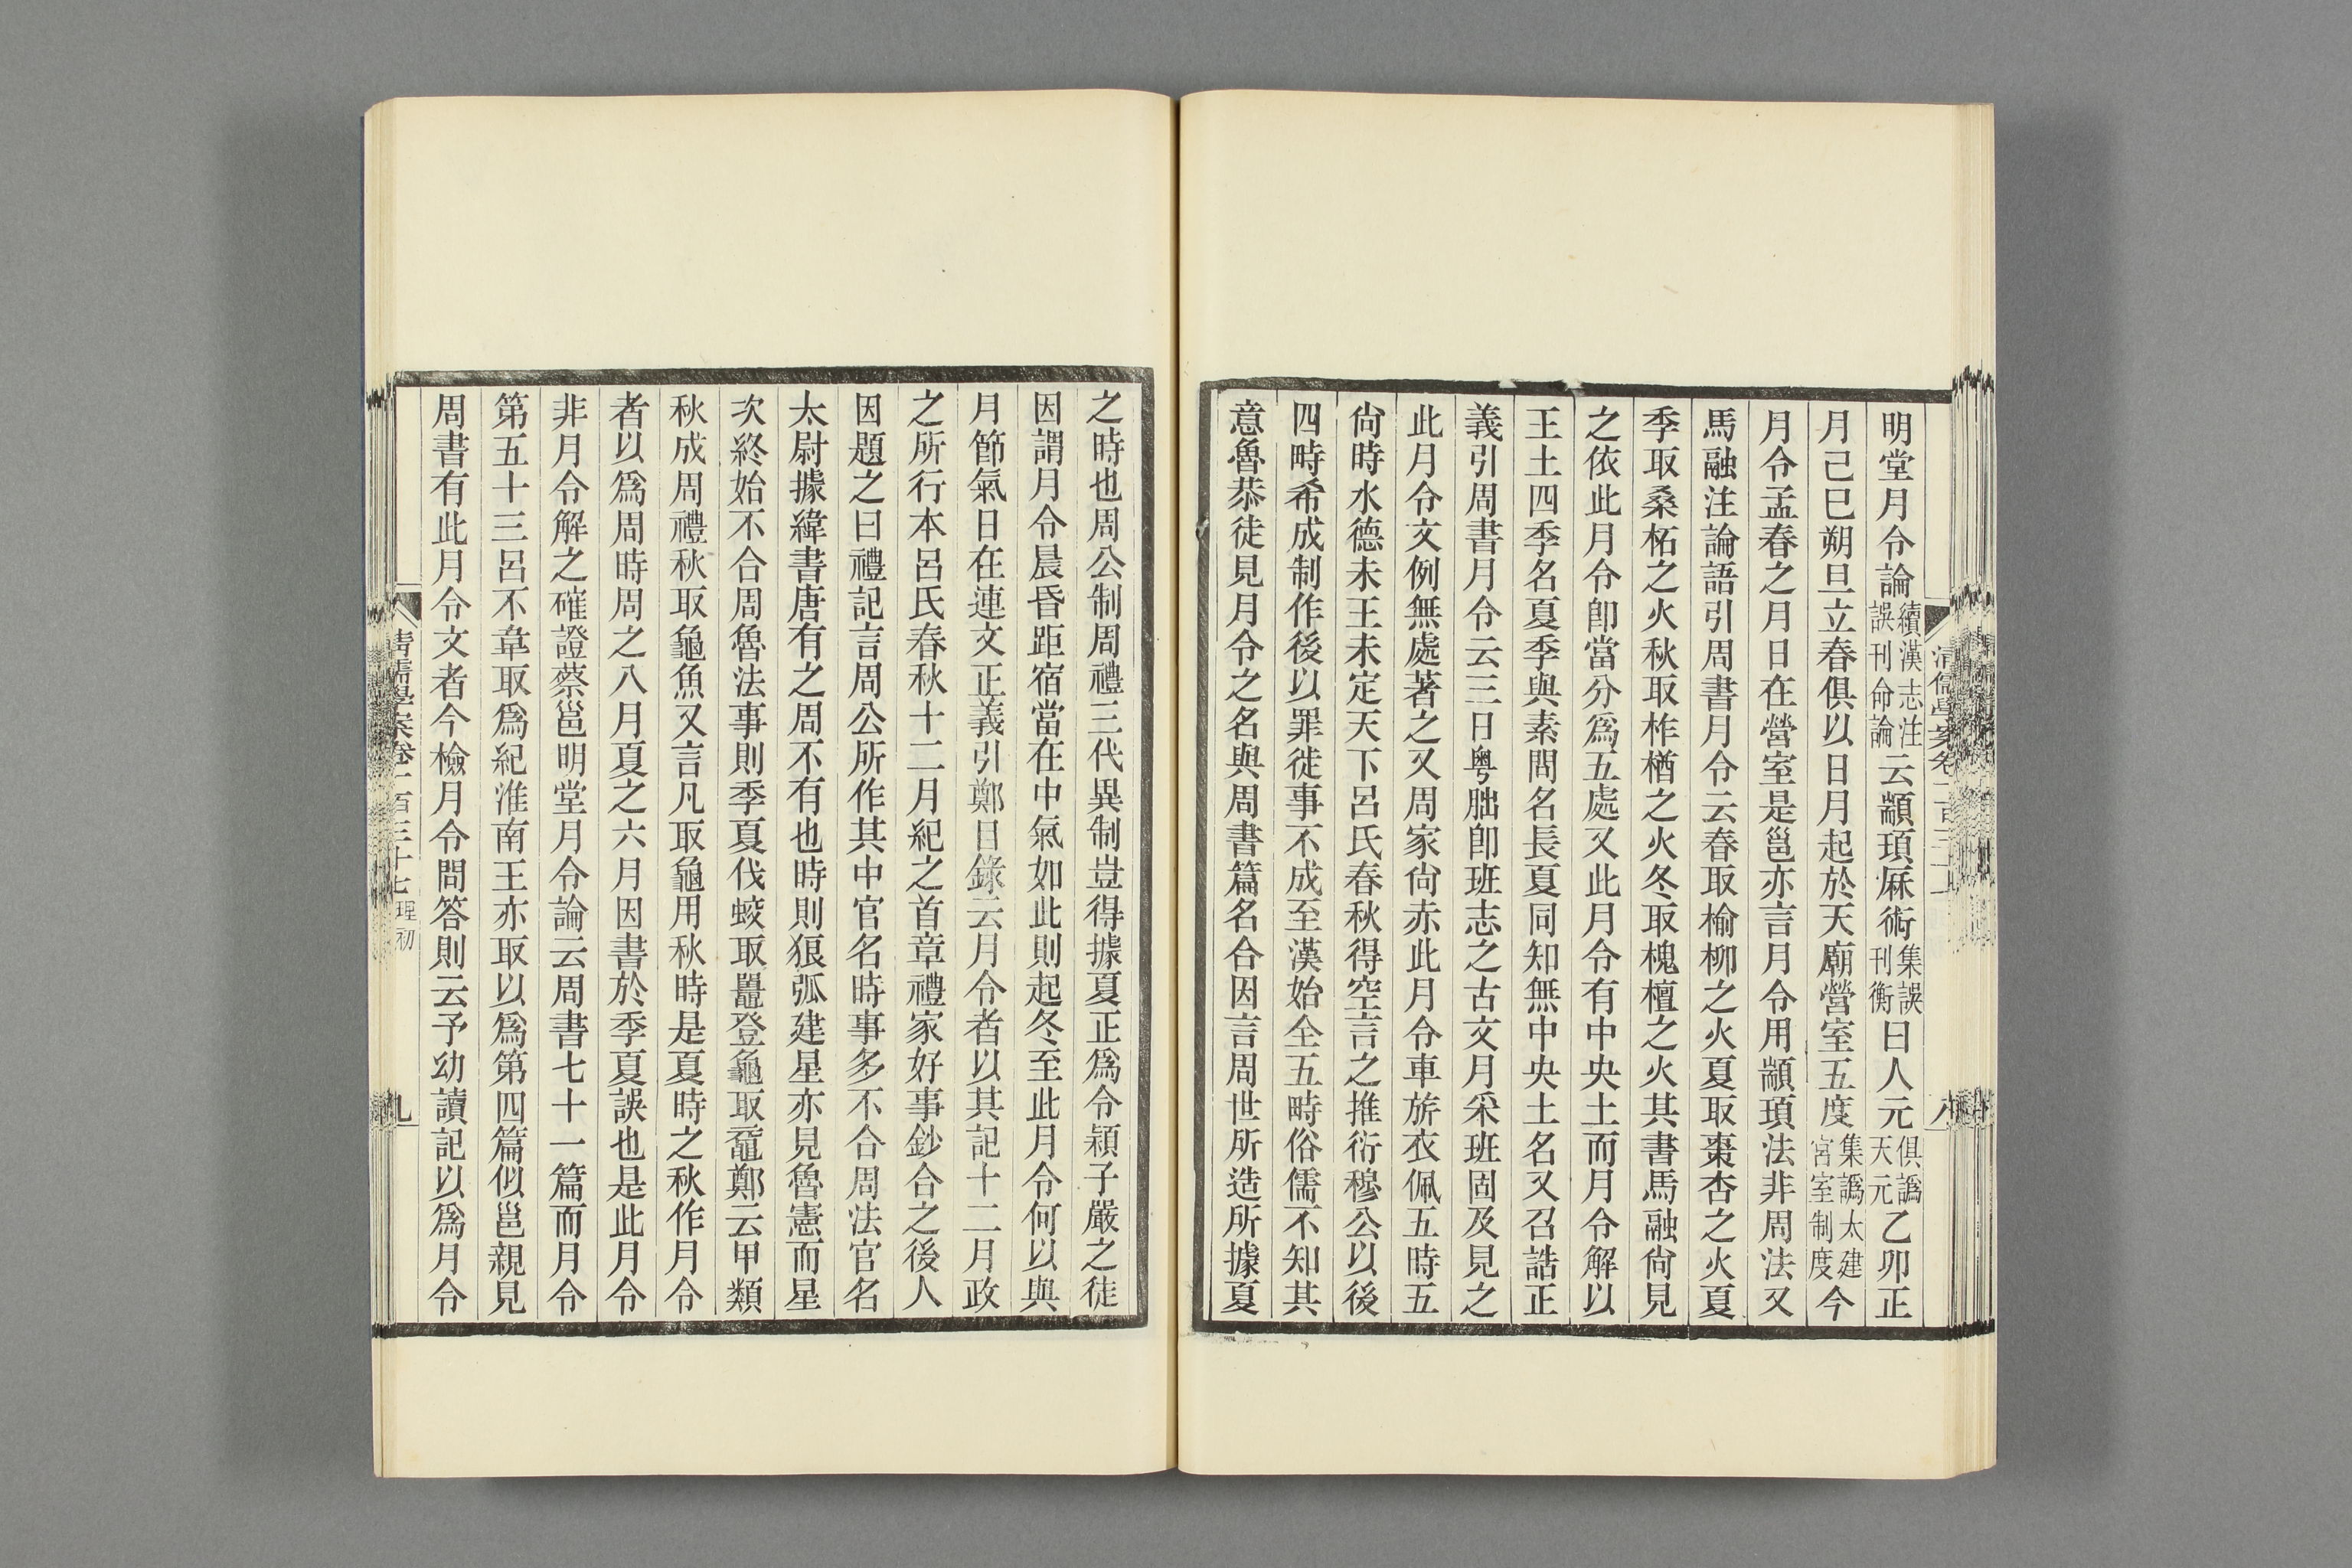 明堂月令論續漢志注誤刊命論云顓頊厤術集誤刊衡曰人元俱譌天元乙卯正
月己巳朔旦立春俱以日月起於天廟營室五度集譌太建宮室制度今
月令孟春之月日在營室是邕亦言月令用顓頊法非周法又
馬融注論語引周書月令云春取榆柳之火夏取棗杏之火夏
季取桑柘之火秋取柞楢之火冬取槐檀之火其書馬融尙見
之依此月令卽當分爲五處又此月令有中央土而月令解以
王土四季名夏季與素問名長夏同知無中央土名又召誥正
義引周書月令云三日粤朏卽班志之古文月采班固及見之
此月令文例無處著之又周家尙赤此月令車旂衣佩五時五
尙時水德未王未定天下呂氏春秋得空言之推衍穆公以後
四時希成制作後以罪徙事不成至漢始全五時俗儒不知其
意魯恭徒見月令之名與周書篇名合因言周世所造所據夏
之時也周公制周禮三代異制豈得據夏正爲令潁子嚴之徒
因謂月令晨昏距宿當在中氣如此則起冬至此月令何以與
月節氣日在連文正義引鄭目錄云月令者以其記十二月政
之所行本呂氏春秋十二月紀之首章禮家好事鈔合之後人
因題之曰禮記言周公所作其中官名時事多不合周法官名
太尉據緯書唐有之周不有也時則狼弧建星亦見魯憲而星
次終始不合周魯法事則季夏伐蛟取鼉登龜取黿鄭云甲類
秋成周禮秋取龜魚又言凡取龜用秋時是夏時之秋作月令
者以爲周時周之八月夏之六月因書於季夏誤也是此月令
非月令解之確證蔡邕明堂月令論云周書七十一篇而月令
第五十三呂不韋取爲紀淮南王亦取以爲第四篇似邕親見
周書有此月令文者今檢月令問答則云予幼讀記以爲月令
清儒學案卷一百三十七理初
九